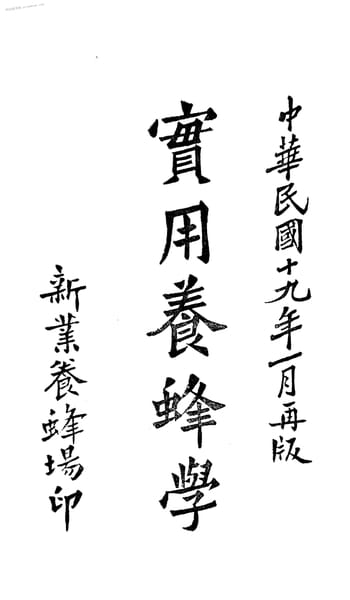 中華民國十九年一月再版
實用養蜂學
新業養蜂場印